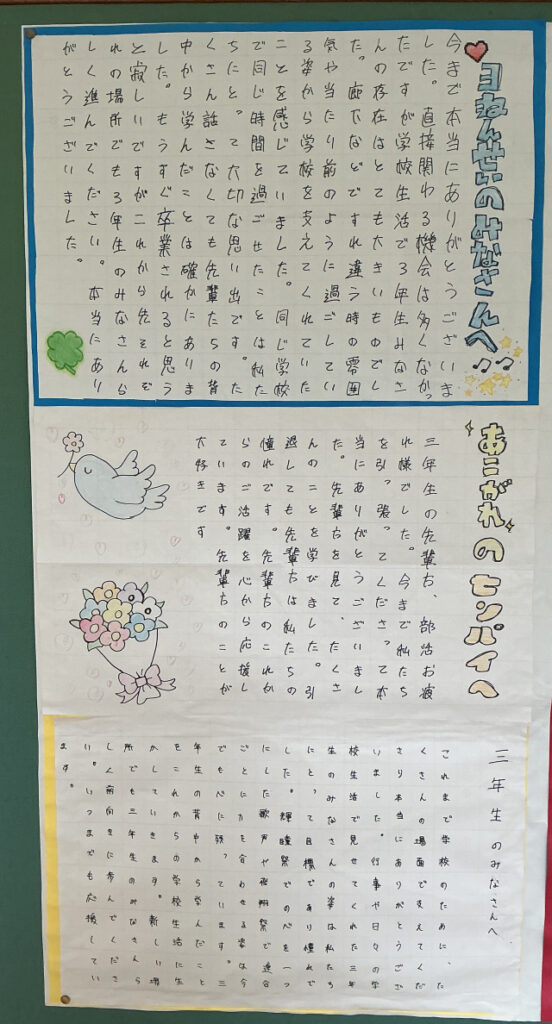 3ねんせいのみなさんへ
今まで本当にありがとうございま
した。直接関わる機会は多くなかっ
たですが学校生活で3年生みなさ
んの存在はとても大きいものでし
た。廊下などですれ違う時の雰囲
気や当たり前のように過ごしてい
る姿から学校を支えてくれていた
ことを感じていました。同じ学校
で同じ時間を過ごせたことは私た
ちにとって大切な思い出です。た
くさん話さなくても先輩たちの背
中から学んだことは確かにありま
した。もうすぐ卒業されると思う
と寂しいですがこれから先それぞ
れの場所でも3年生のみなさんら
しく進んでください。本当にあり
がとうございました。
あこがれのセンパイへ
三年生の先輩方、部活お疲
れ様でした。今まで私たち
を引っ張ってくださって本
当にありがとうございまし
た。先輩方を見て、たくさ
んのことを学びました。引
退しても先輩方は私たちの
憧れです。先輩方のこれか
らのご活躍を心から応援し
ています。先輩方のことが
大好きです
三年生のみなさんへ
これまで学校のために、た
くさんの場面で支えてくだ
さり本当にありがとうござ
いました。行事や日々の学
校生活で見せてくれた三年
生のみなさんの姿は私たち
にとって目標であり憧れで
した。輝瞳祭での心を一つ
にした歌声や飛翔祭で連合
ごとに力を合わせる姿は今
でも心に残っています。三
年生の背中から学んだこと
をこれからの学校生活に生
かしていきます。新しい場
所でも三年生のみなさんら
しく前向きに歩んでくださ
い。いつまでも応援してい
ます。